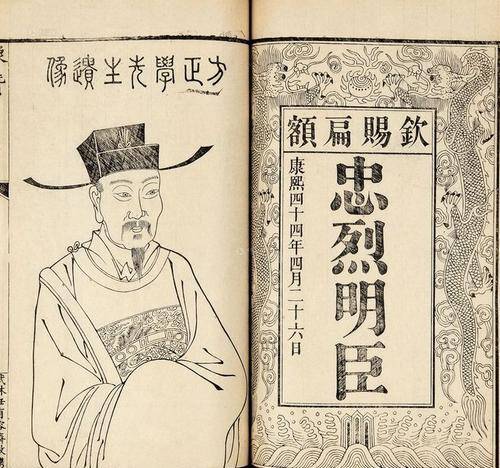 欽賜扁額
忠烈明臣
康熙四十四年四月二十六日
方正學先生遺像